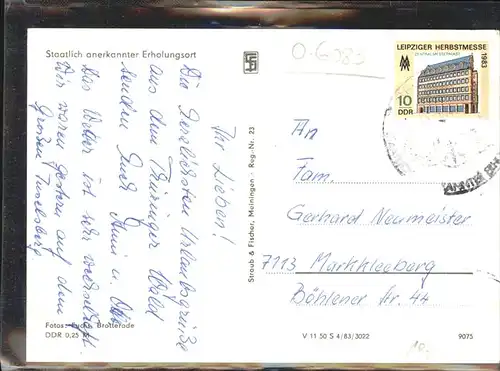 Staatlich anerkannter Erholungsort
Ihr Lieben!
Die herzlichsten Urlaubsgrüße
aus dem Thüringer Wald
senden Euch Anni u.
Das Wetter ist sehr wechselhaft.
Wir waren gestern auf dem
Großen Inselsberg.
Fotos: Fuchs, Brotterode
DDR 0,25 M
Straub & Fischer, Meiningen - Reg.-Nr. 23
0-6083
LEIPZIGER HERBSTMESSE
1983
10
DDR
An
Fam.
Gerhard Neumeister
7113 Markkleeberg
Böhlener Str. 44
V 11 50 S 4/83/3022
9075